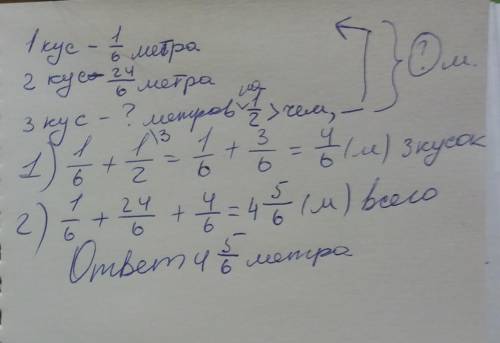 1 кус – 1/6 метра
2 кус – 24/6 метра
3 кус – ? метров на 1/2 > чем, —
? м.
1) 1/6 + 1/2 \3 = 1/6 + 3/6 = 4/6 (м) 3 кусок
2) 1/6 + 24/6 + 4/6 = 4 5/6 (м) всего
Ответ 4 5/6 метра